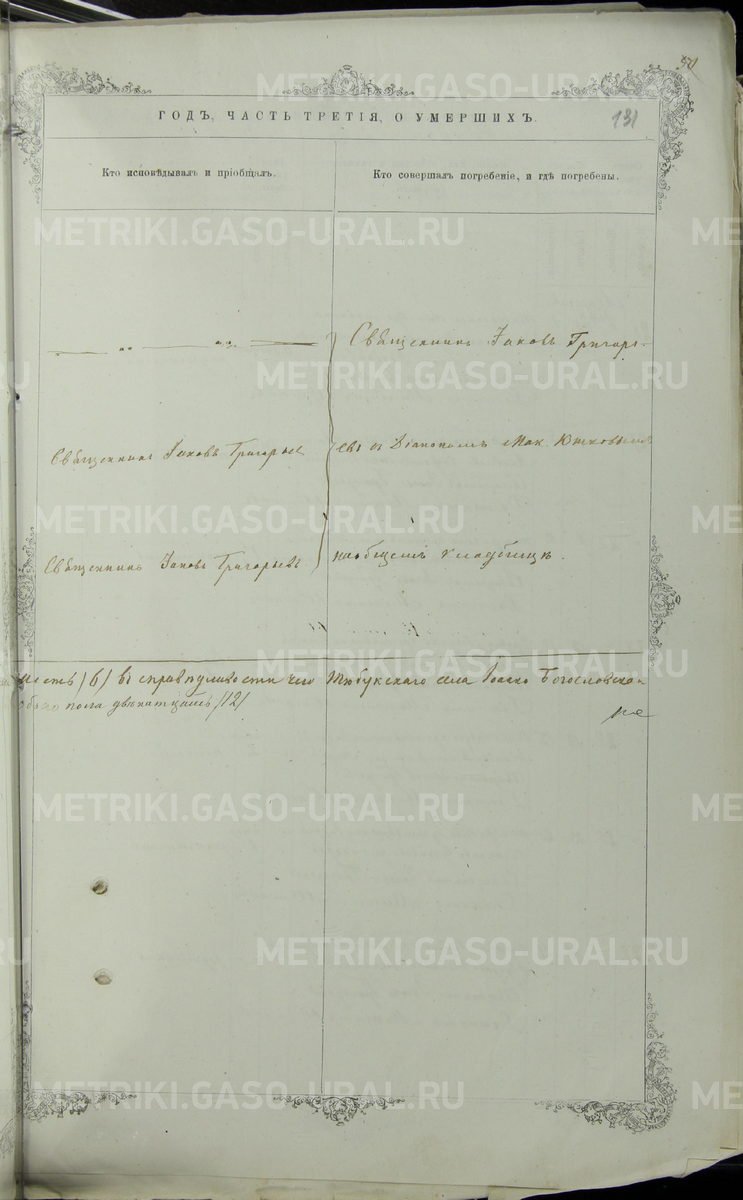 501
131
ГОДЪ, ЧАСТЬ ТРЕТІЯ, О УМЕРШИХЪ.
Кто исповѣдывалъ и пріобщалъ.
Кто совершалъ погребеніе, и гдѣ погребены.
Священникъ Іаковъ Григорь-
Священникъ Іаковъ Григорьев
евъ съ Діакономъ
Священникъ Іаковъ Григорьевъ
на общемъ кладбищѣ.
шесть /6/ въ справедливости чего Тюбукскаго села Іоанно Богословско-
обоего пола двѣнатцать /12/
METRIKI.GASO-URAL.RU
METRIKI.GASO-URAL.RU
METRIKI.GASO-URAL.RU
METRIKI.GASO-URAL.RU
METRIKI.GASO-URAL.RU
METRIKI.GASO-URAL.RU
METRIKI.GASO-URAL.RU
METRIKI.GASO-URAL.RU